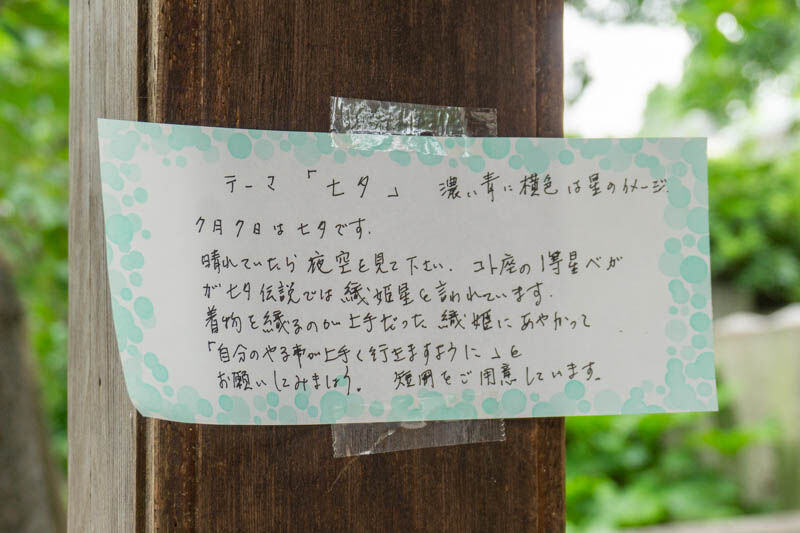 テーマ「七夕」 濃い青に橙色は星のイメージ
7月7日は七夕です.
晴れていたら夜空を見て下さい. コト座の1等星ベガ
が七夕伝説では織姫星を言われています.
着物を織るのが上手だった織姫にあやかって
「自分のやる事が上手く行きますように」と
お願いしてみましょう。 短冊をご用意しています。